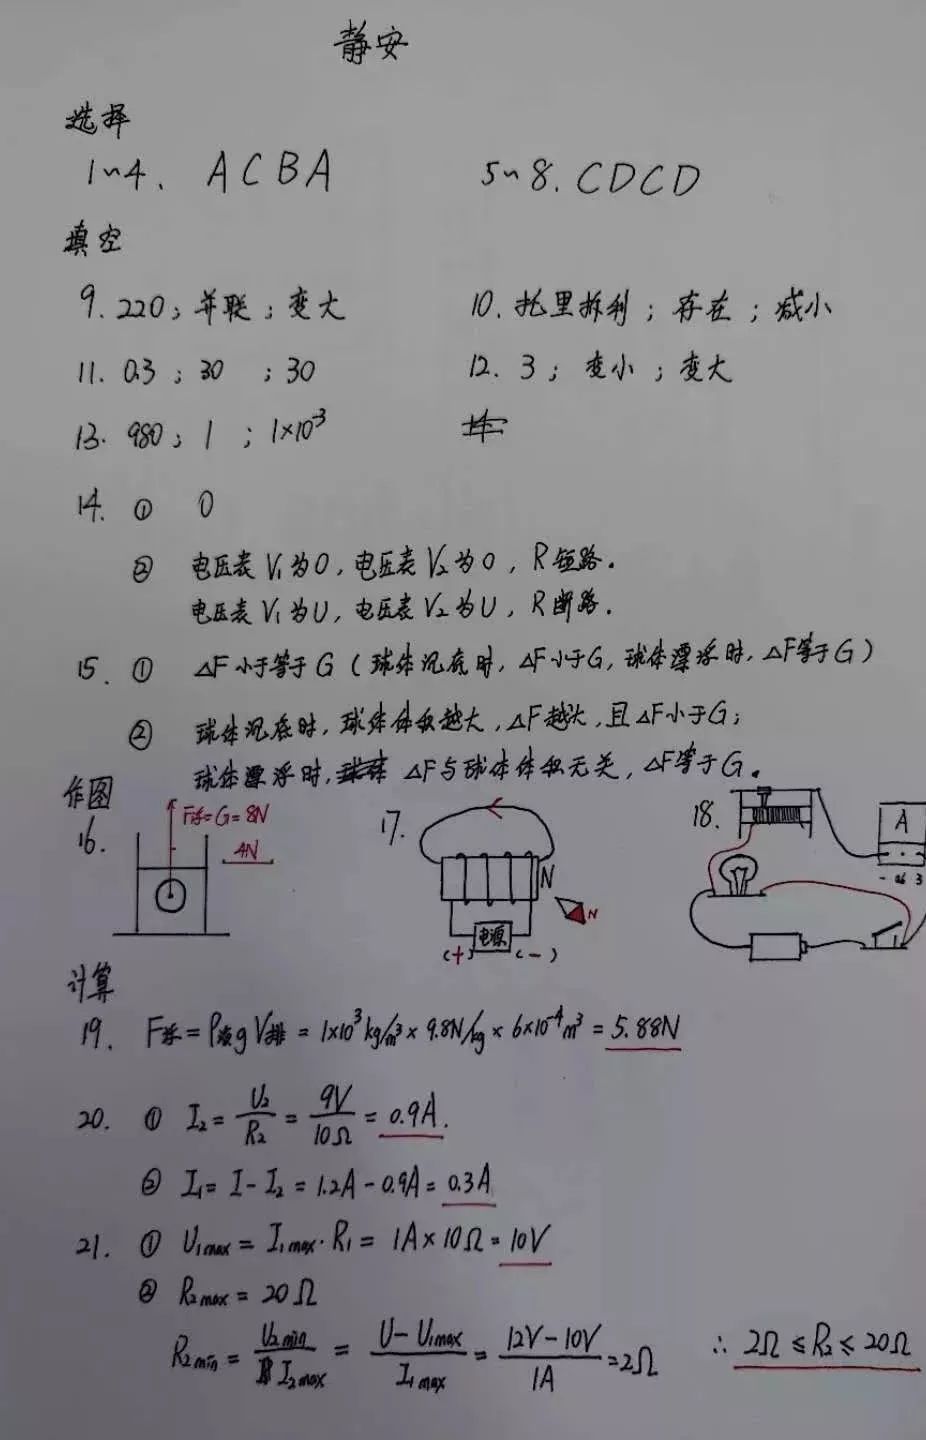 静安
选择
1~4. ACBA 5~8. CDCD
填空
9. 220; 并联; 变大 10. 托里拆利; 存在; 减小
11. 0.3; 30; 30 12. 3; 变小; 变大
13. 980; 1; 1×10⁻³
14. ① 0
② 电压表V₁为0, 电压表V₂为0, R短路.
电压表V₁为U, 电压表V₂为U, R断路.
15. ① △F小于等于G (球体沉底时, △F小于G, 球体漂浮时, △F等于G)
② 球体沉底时, 球体体积越大, △F越大, 且△F小于G;
球体漂浮时, △F与球体体积无关, △F等于G.
作图
16. F浮=G=8N 4N 17. N N 电源 (+) (-) 18. A - 0.6 3
计算
19. F浮=ρ液gV排=1×10³kg/m³×9.8N/kg×6×10⁻⁴m³=5.88N
20. ① I₂=U₂/R₂=9V/10Ω=0.9A.
② I₁=I-I₂=1.2A-0.9A=0.3A
21. ① U₁max=I₁max·R₁=1A×10Ω=10V
② R₂max=20Ω
R₂min=U₂min/I₂max=(U-U₁max)/I₁max=(12V-10V)/1A=2Ω ∴2Ω≤R₂≤20Ω